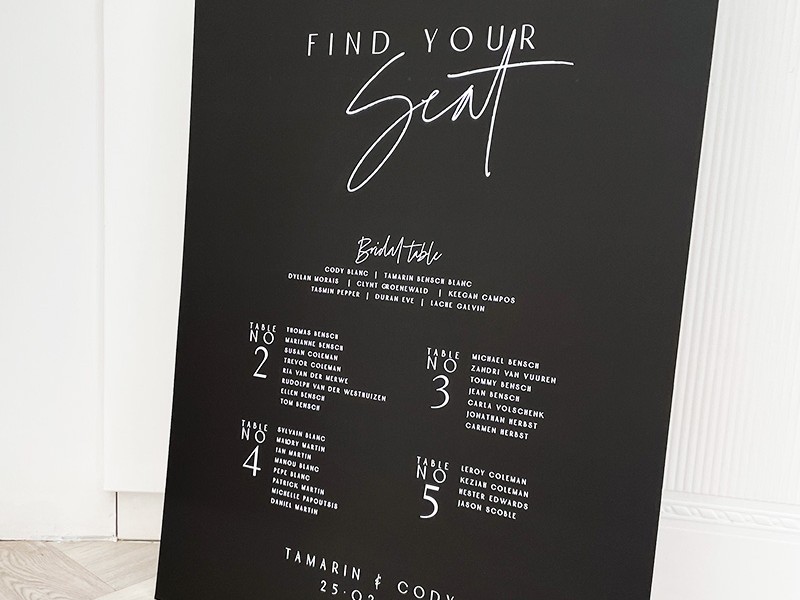 FIND YOUR
Seat
Bridal table
CODY BLANC | TAMARIN BENSCH BLANC
DYELAN MORAIS | CLYNT GROENEWALD | KEEGAN CAMPOS
TASMIN PEPPER | DURAN EVE | LACHE GALVIN
TABLE
NO
2
THOMAS BENSCH
MARIANNE BENSCH
SUSAN COLEMAN
TREVOR COLEMAN
RIA VAN DER MERWE
RUDOLPH VAN DER WESTHUIZEN
ELLEN BENSCH
TOM BENSCH
TABLE
NO
3
MICHAEL BENSCH
ZANDRI VAN VUUREN
TOMMY BENSCH
JEAN BENSCH
CARLA VOLSCHENK
JONATHAN HERBST
CARMEN HERBST
TABLE
NO
4
SYLVAIN BLANC
MARTIN
IAN MARTIN
MANOU BLANC
PEPE BLANC
PATRICK MARTIN
MICHELLE PAPOUTSIS
DANIEL MARTIN
TABLE
NO
5
LEROY COLEMAN
KEZIAH COLEMAN
HESTER EDWARDS
JASON SCOBLE
TAMARIN & CODY
25.02